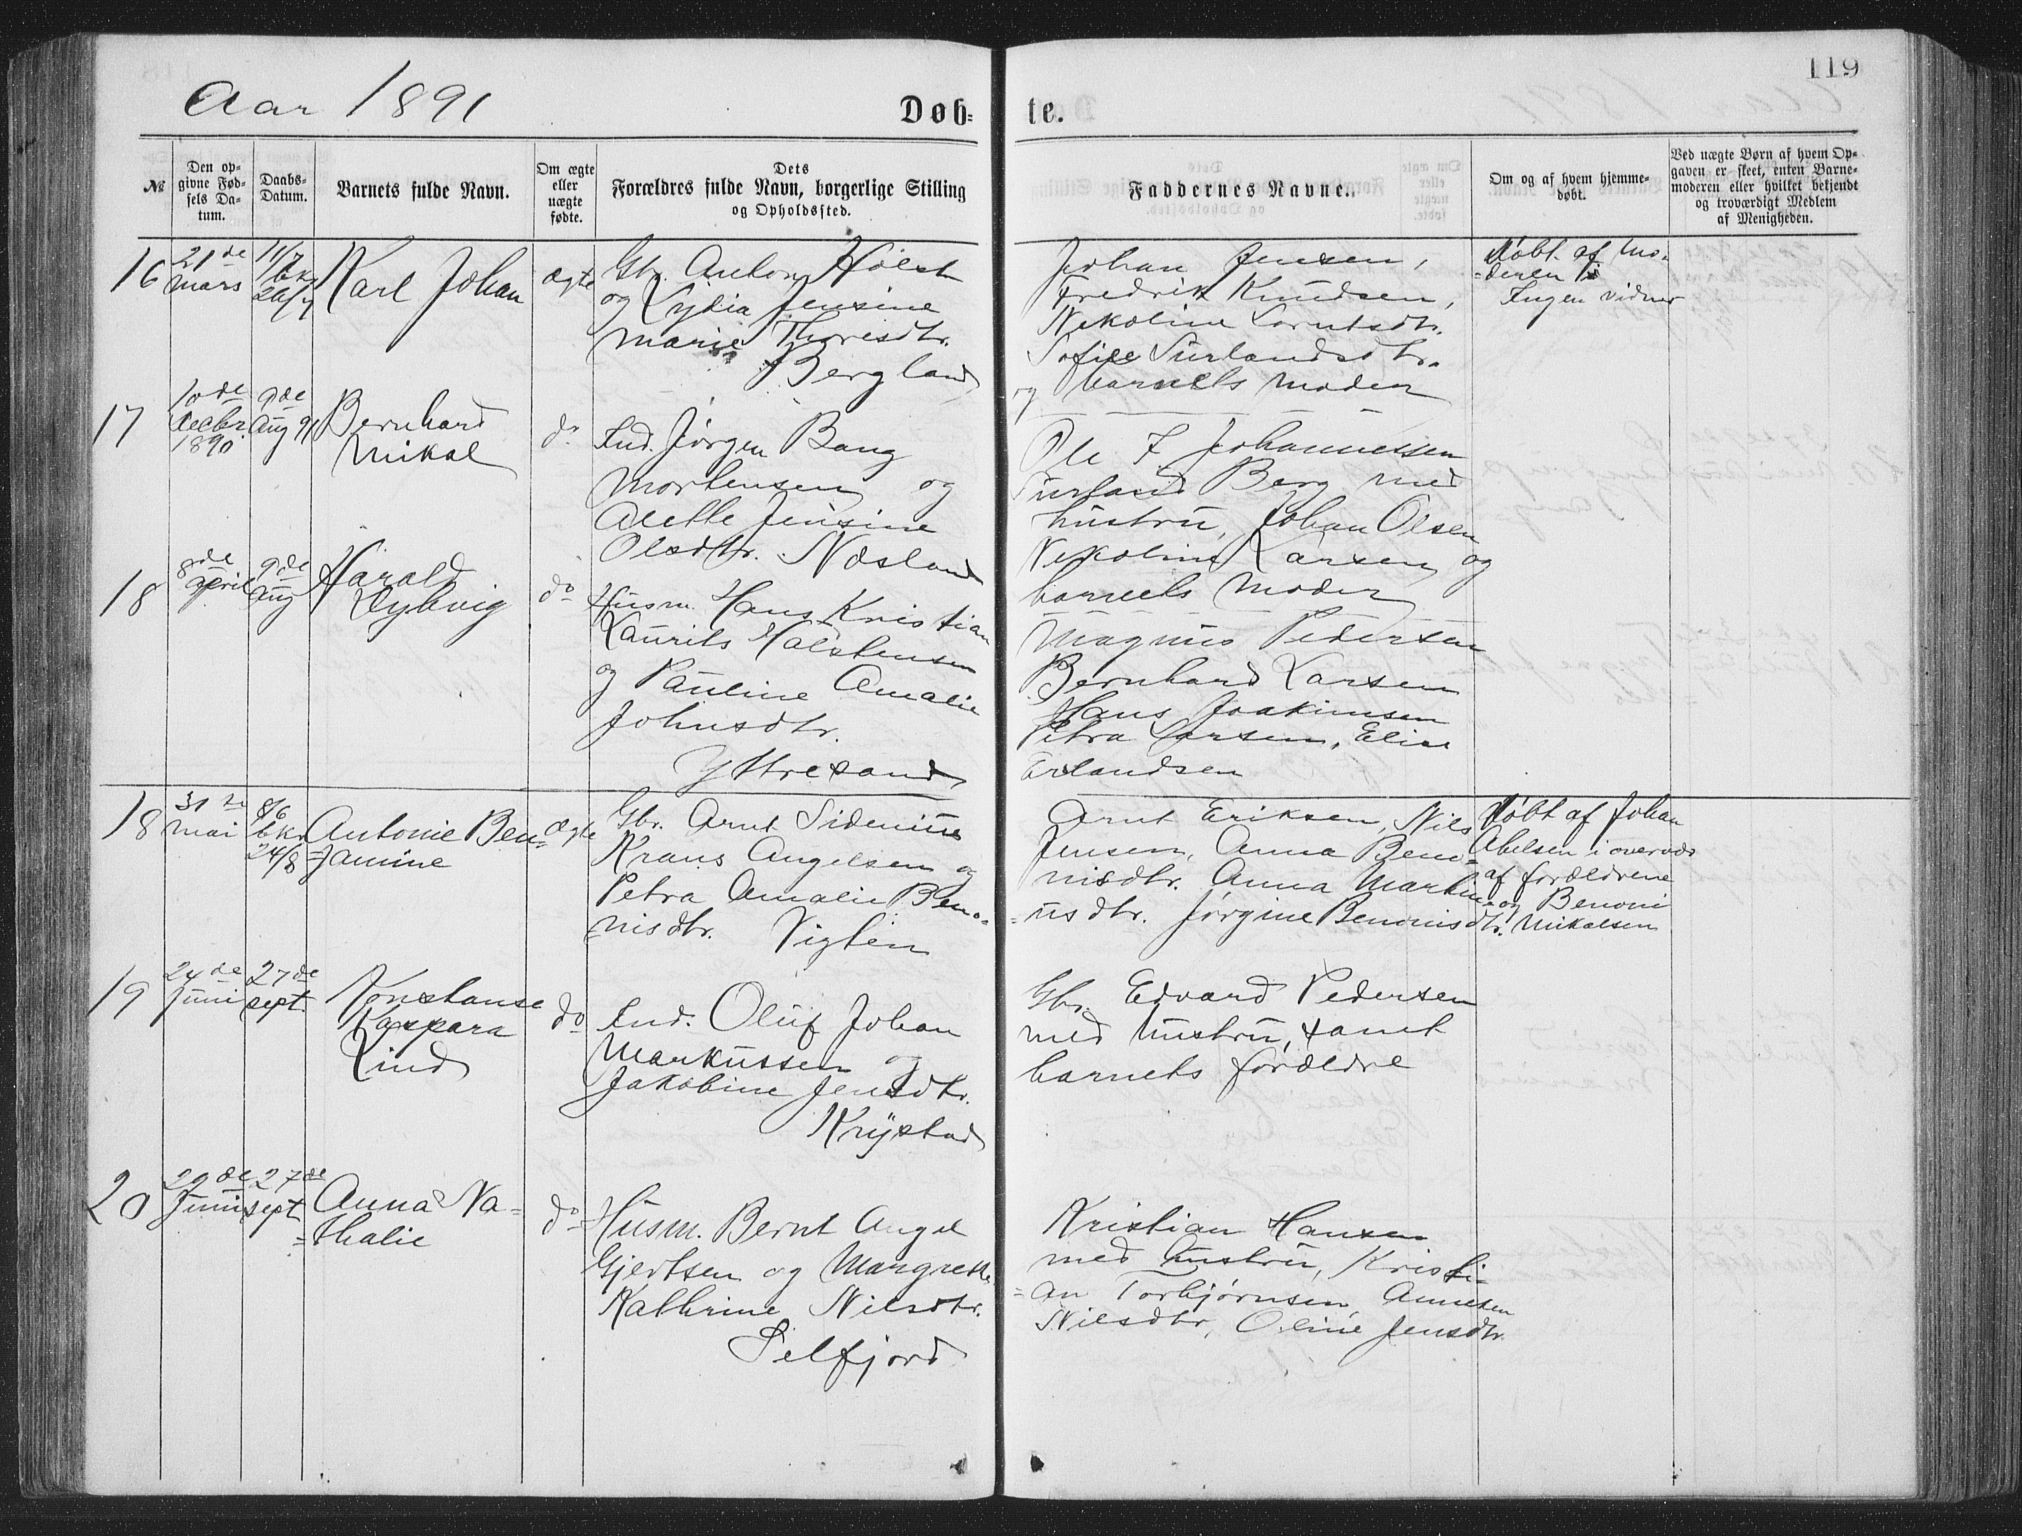 119
Aar 1891
Døb-
te.
№
Den op-
givne Fød-
sels Da-
tum.
Daabs-
Datum.
Barnets fulde Navn.
Om ægte
eller
uægte
fødte.
Dets
Forældres fulde Navn, borgerlige Stilling
og Opholdsted.
Faddernes Navne.
Om og af hvem hjemme-
døbt.
Ved uægte Børn af hvem Op-
gaven er skeet, enten Barne-
moderen eller hvilket bekjendt
og troværdigt Medlem
af Menigheden.
16
21de
mars
11/7
bkr
26/7
Karl Johan
ægte
Gbr. Anton Holst
og Lydia Jensine
Marie Thorisdtr.
Bergland
Johan Jensen,
Fredrik Knudsen,
Nikoline Lorntsdtr.
Sofie Surlandsdtr.
og barnets moder
Døbt af mo-
deren
Ingen vidner
17
10de
decbr
1890
9de
Aug 91
Bernhard
Mikal
do
Ind. Jørgen Bang
Mortensen og
Alette Jensine
Olsdtr. Næsland
Ole J Johannessen
Surland Berg med
hustru, Johan Olsen
Nikoline Larsen og
barnets moder
18
8de
april
9de
aug
Harald
Lydvig
do
Husm. Hans Kristian
Laurits Halstensen
og Pauline Amalie
Johnsdtr.
Yttresand
Magnus Pedersen
Bernhard Larsen
Hans Joakimsen
Petra Larsen, Elise
Erlandsen
18
31te
mai
8/6
bkr
24/8
Antonie Ben-
=jamine
ægte
Gbr. Arnt Sidenius
Krans Angelsen og
Petra Amalie Beno-
nisdtr. Vigten
Arnt Eriksen, Nils
Jensen, Anna Beno-
nisdtr. Anna Martin-
=usdtr. Jørgine Benonisdtr.
Døbt af Johan
Abelsen i overvær
af forældrene
og Benoni
Mikalsen
19
24de
Juni
27de
sept.
Konstanse
Kaspara
Lind
do
Ind. Oluf Johan
Markussen og
Jakobine Jensdtr.
Krystad
Gbr. Edvard Pedersen
med hustru, samt
barnets forældre
20
29de
Juni
27de
sept
Anna Na-
=thalie
do
Husm. Bernt Angel
Gjertsen og Margrethe
Kathrine Nilsdtr.
Selfjord
Kristian Hansen
med hustru, Kristi-
=an Torbjørnsen,
Nilsdtr, Oline Jensdtr